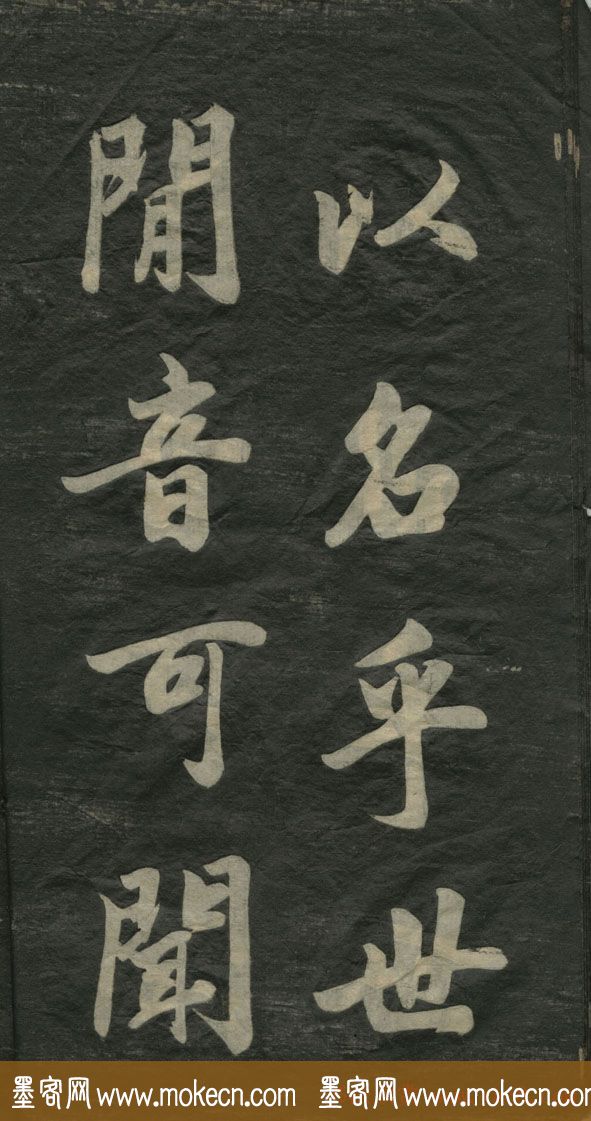 以名乎世
閒音可聞
墨客网 www.mokecn.com 墨客网 www.mokecn.com